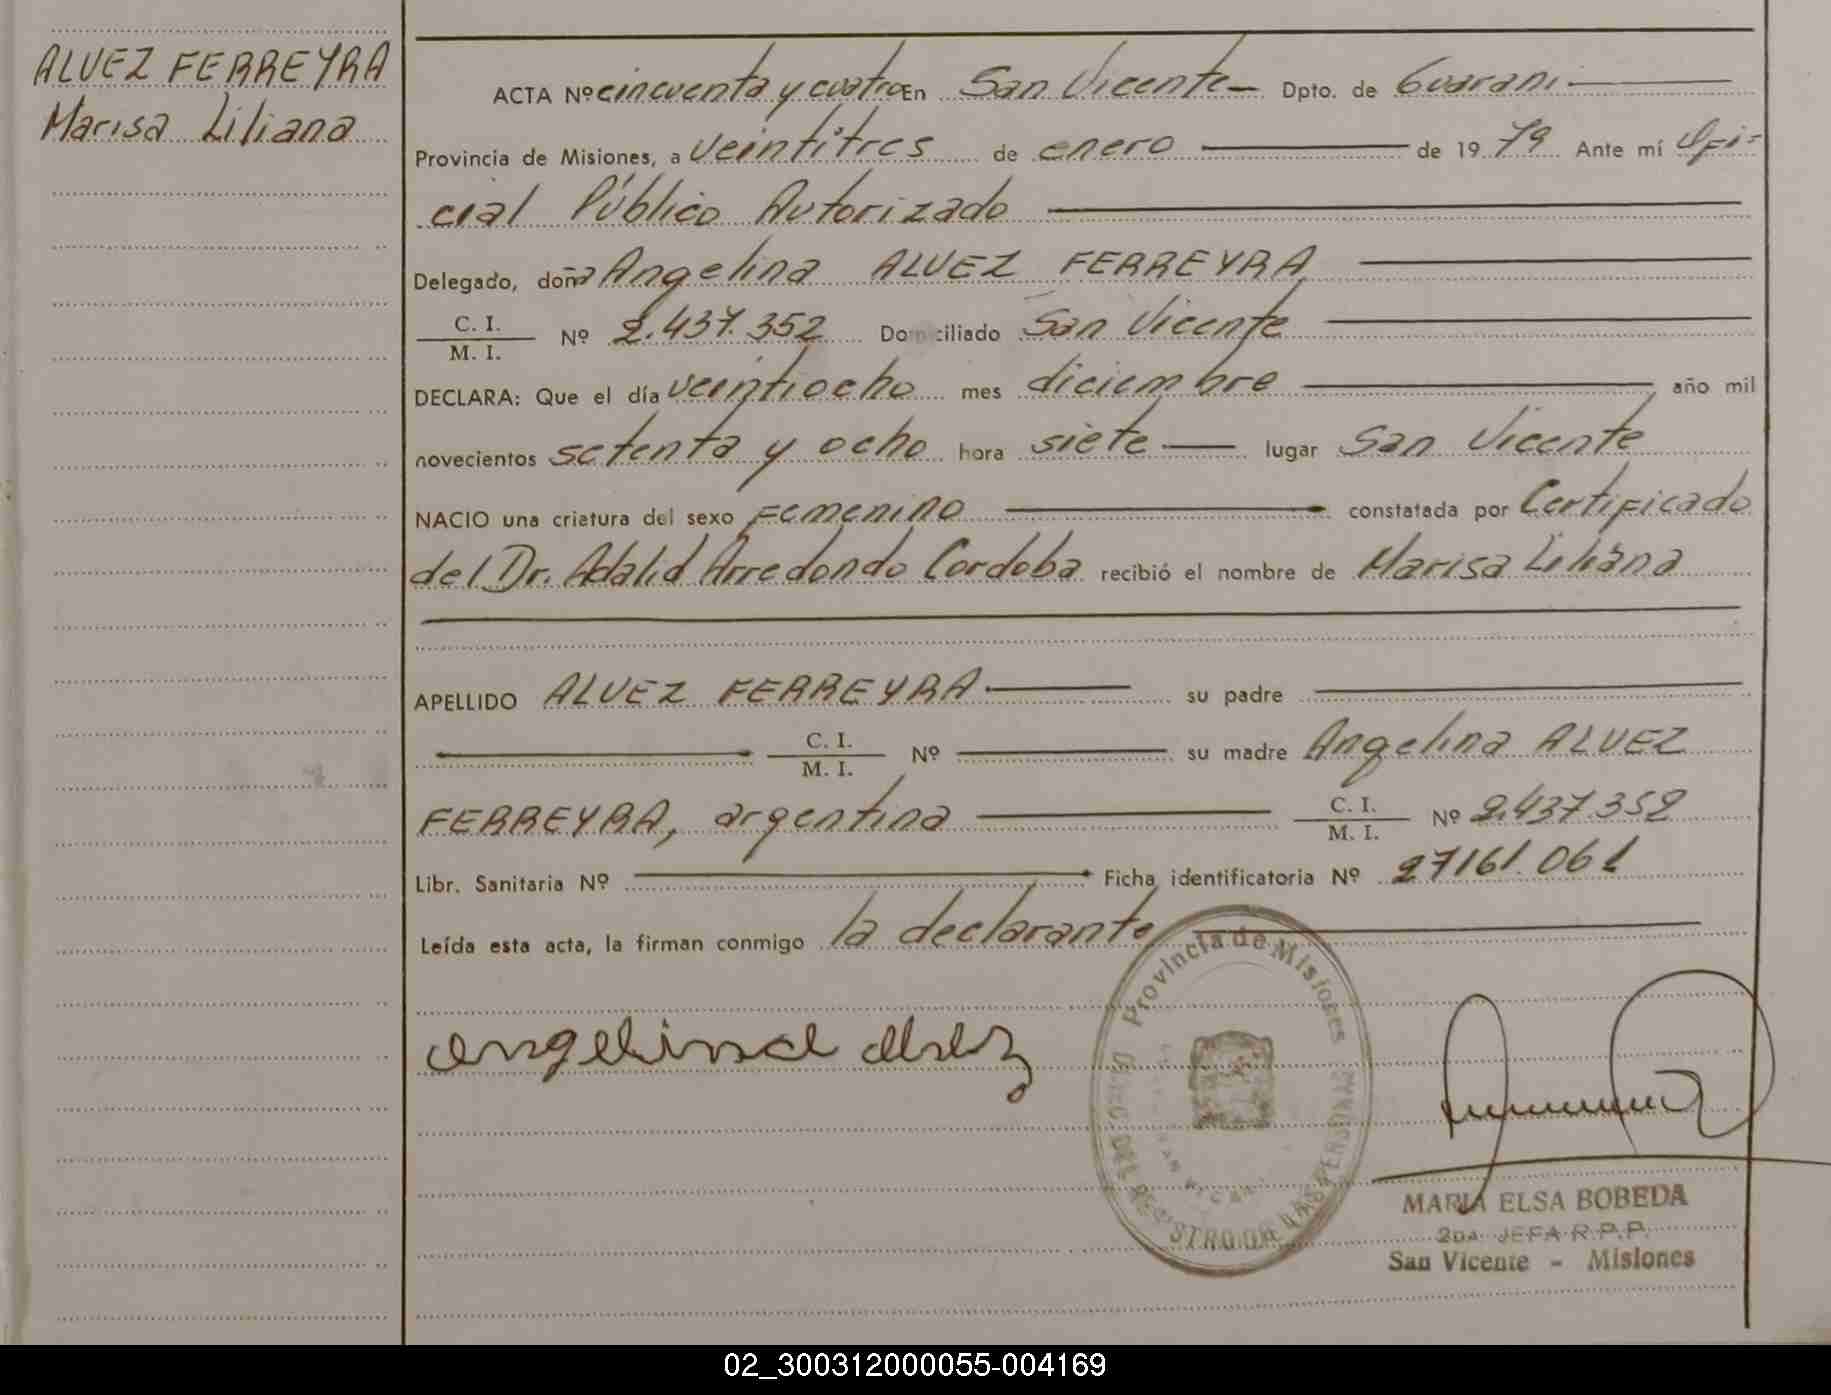 ALVEZ FERREYRA
Marisa Liliana
ACTA Nº cincuenta y cuatro En San Vicente Dpto. de Guarani
Provincia de Misiones, a veintitres de enero de 1979 Ante mí Ofi-
cial Público Autorizado
Delegado, doña Angelina ALVEZ FERREYRA
C. I.
M. I. Nº 2.437.352 Domiciliado San Vicente
DECLARA: Que el día veintiocho mes diciembre año mil
novecientos setenta y ocho hora siete lugar San Vicente
NACIO una criatura del sexo Femenino constatada por Certificado
del Dr. Adalid Arredondo Cordoba recibió el nombre de Marisa Liliana
APELLIDO ALVEZ FERREYRA su padre
C. I.
M. I. Nº su madre Angelina ALVEZ
FERREYRA, argentina C. I.
M. I. Nº 2.437.352
Libr. Sanitaria Nº Ficha identificatoria Nº 27161.061
Leída esta acta, la firman conmigo la declarante
Provincia de Misiones
DEL REGISTRO DE LAS PERSONAS
SAN VICENTE
angelina alvez
MARIA ELSA BOBEDA
2DA JEFA R.P.P.
San Vicente - Misiones
02_300312000055-004169